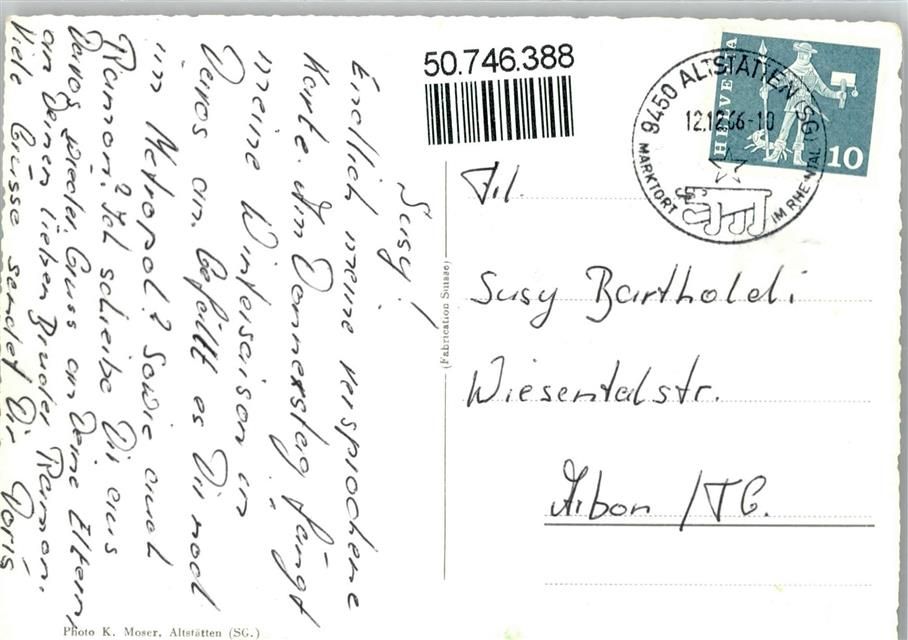 Susy!
Endlich meine versprochene
Karte. Am Donnerstag fängt
meine Wintersaison in
Davos an. Gefällt es Dir noch
im Metropol? Sowie auch
Ramon? Ich schreibe Dir aus
Davos wieder. Gruss an Deine Eltern,
an Deinen lieben Bruder Ramon.
Viele Grüsse sendet Dir Doris
Photo K. Moser, Altstätten (SG.)
(Fabrication Suisse)
50.746.388
9450 ALTSTÄTTEN (SG)
12.12.66-10
MARKTORT IM RHEINTAL
HELVETIA
10
Frl.
Susy Bartholdi
Wiesentalstr.
Arbon /TG.